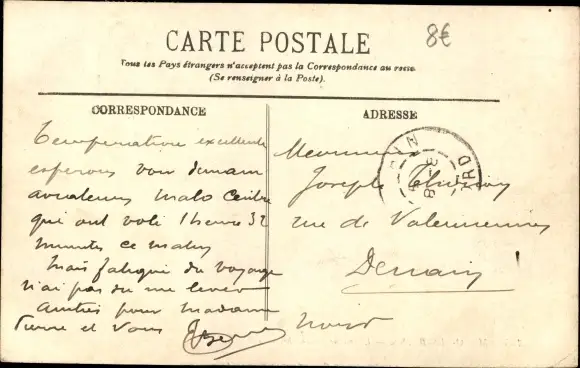 8€
CARTE POSTALE
Tous les Pays étrangers n'acceptent pas la Correspondance au recto.
(Se renseigner à la Poste).
CORRESPONDANCE
Temperature excellente
esperons voir demain
aviateurs Malo Centre
qui ont volé 1 heure 32
minutes ce matin
Mais fatigué du voyage
n'ai pas pu me lever
Amitiés pour Madame
Pierre et Vous
ADRESSE
Monsieur
Joseph
rue de Valenciennes
Denain
Nord